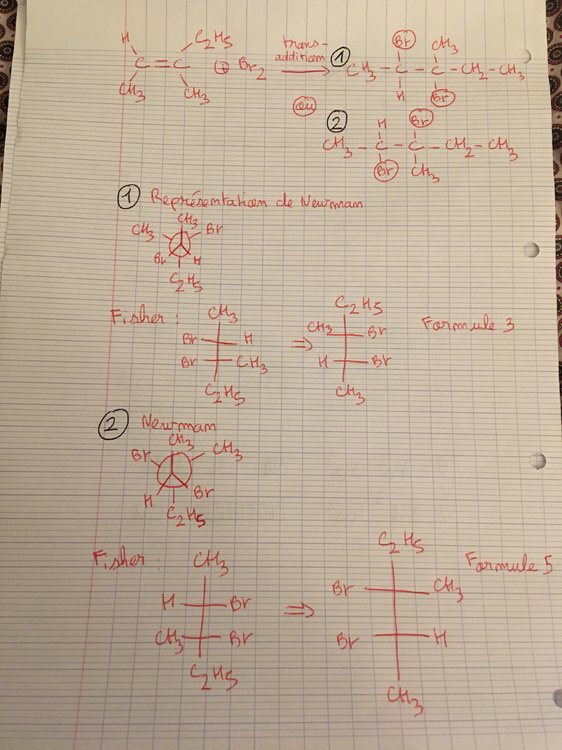 H C2H5 trans-
C=C + Br2 addition
CH3 CH3
① Br CH3
CH3 - C - C - CH2 - CH3
H Br
ou
② H Br
CH3 - C - C - CH2 - CH3
Br CH3
① Représentation de Newmam
CH3
CH3 Br
Br H
C2H5
Fisher :
CH3
Br H
Br CH3
C2H5
⇒
C2H5
CH3 Br
H Br
CH3
Formule 3
② Newmam
CH3
Br CH3
H Br
C2H5
Fisher :
CH3
H Br
CH3 Br
C2H5
⇒
C2H5
Br CH3
Br H
CH3
Formule 5